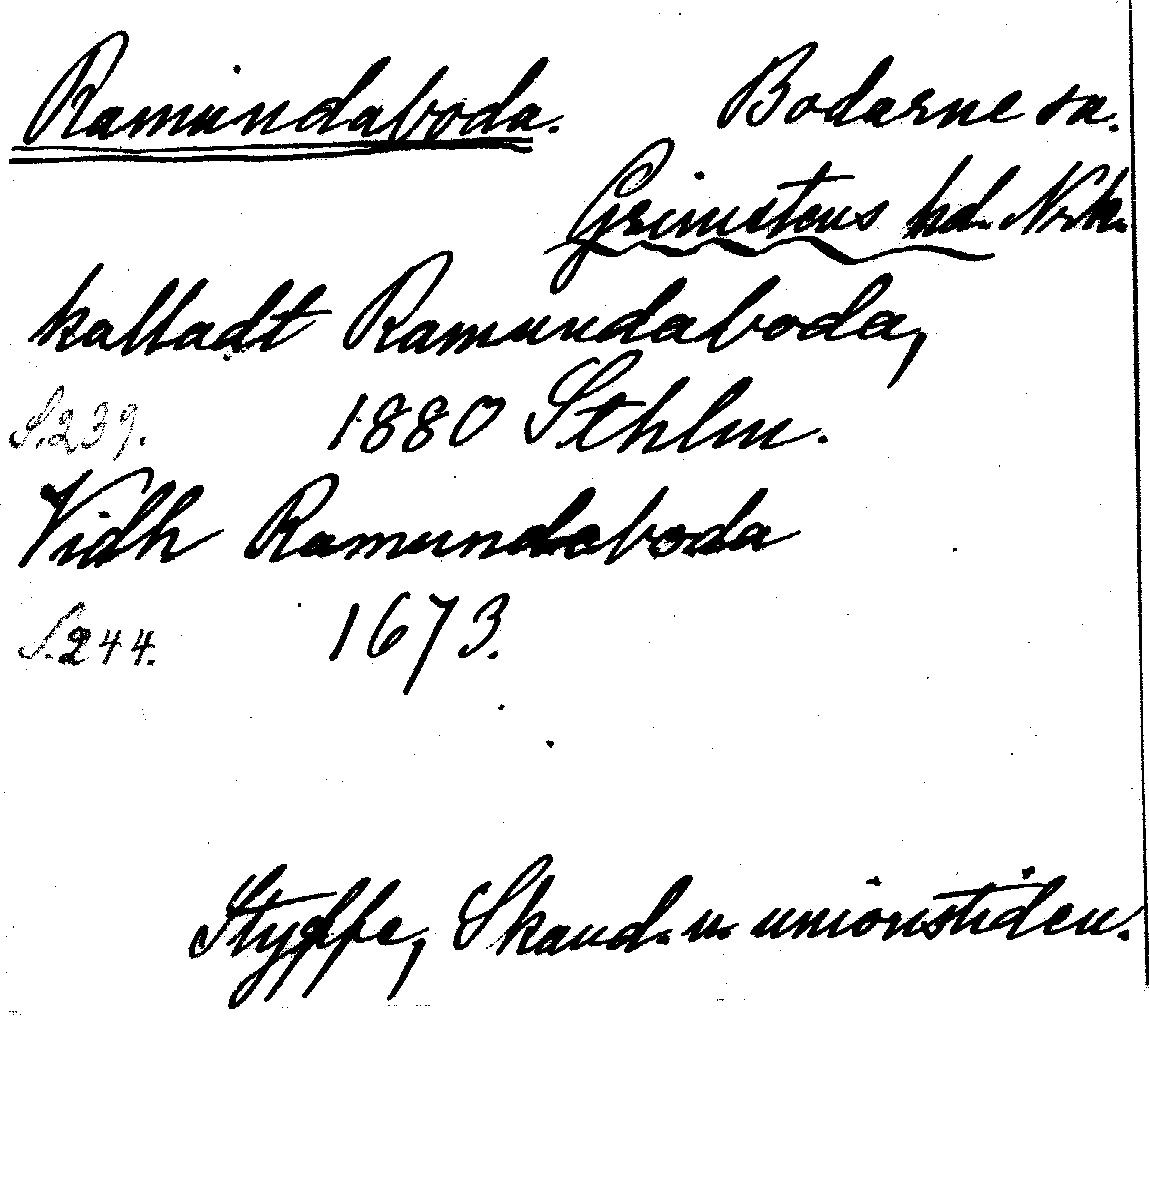 Ramundaboda. Bodarne sn.
Grimstens hd. Nrk.
kalladt Ramundaboda,
S. 239. 1880 Sthlm.
Vidh Ramundaboda
S. 244. 1673.
Styffe, Skand. u. unionstiden.